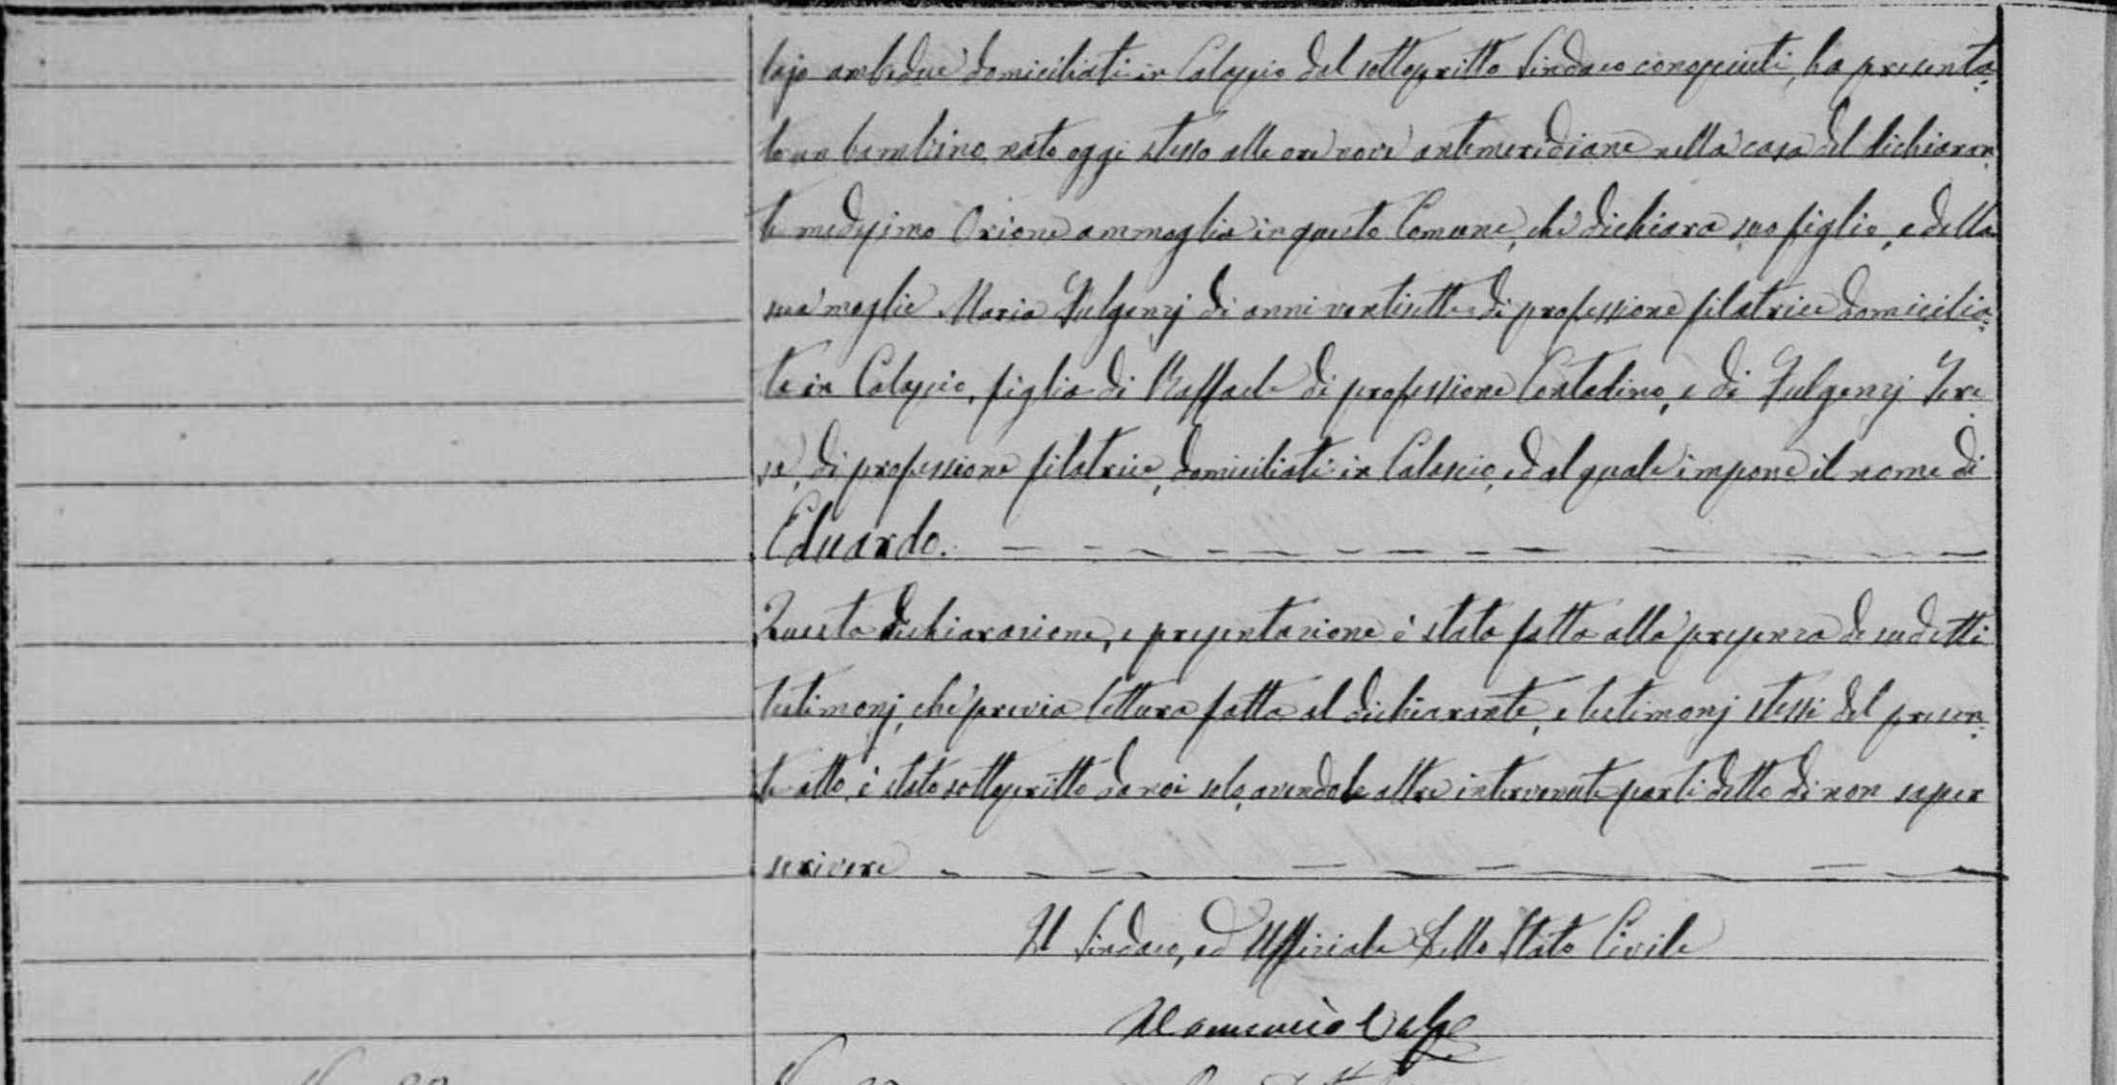 lajo ambedue domiciliati in Calascio dal sottoscritto Sindaco conosciuti, ha presenta=
to un bambino nato oggi stesso alle ore nove antemeridiane nella casa del dichiaran=
te medesimo Orione ammoglia in questo Comune, che dichiara suo figlio, e della
sua moglie Maria Fulgenzj di anni ventisette di professione filatrice domicilia=
ta in Calascio, figlia di Raffaele di professione Contadino, e di Fulgenzj Tere
sa, di professione filatrice, domiciliati in Calascio, ed al quale impone il nome di
Eduardo.
Questa dichiarazione, e presentazione è stata fatta alla presenza de sudetti
testimonj, che previa lettura fatta al dichiarante, e testimonj stessi del presen=
te atto, è stato sottoscritto da noi solo, avendo le altre intervenute parti detto di non saper
scrivere
Il Sindaco, ed Uffiziale dello Stato Civile